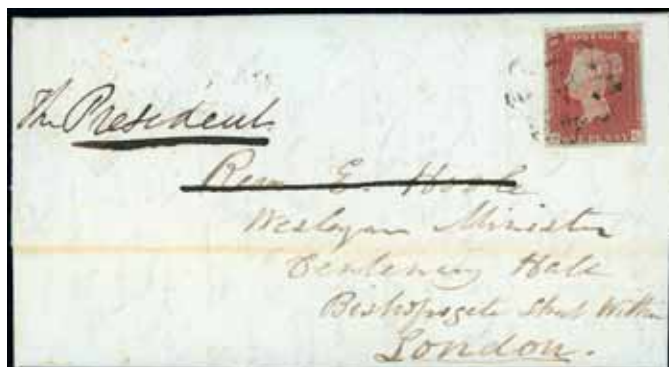 POSTAGE
The President
Revd E. Hoole
Wesleyan Minister
Centenary Hall
Bishopsgate Street Within
London.